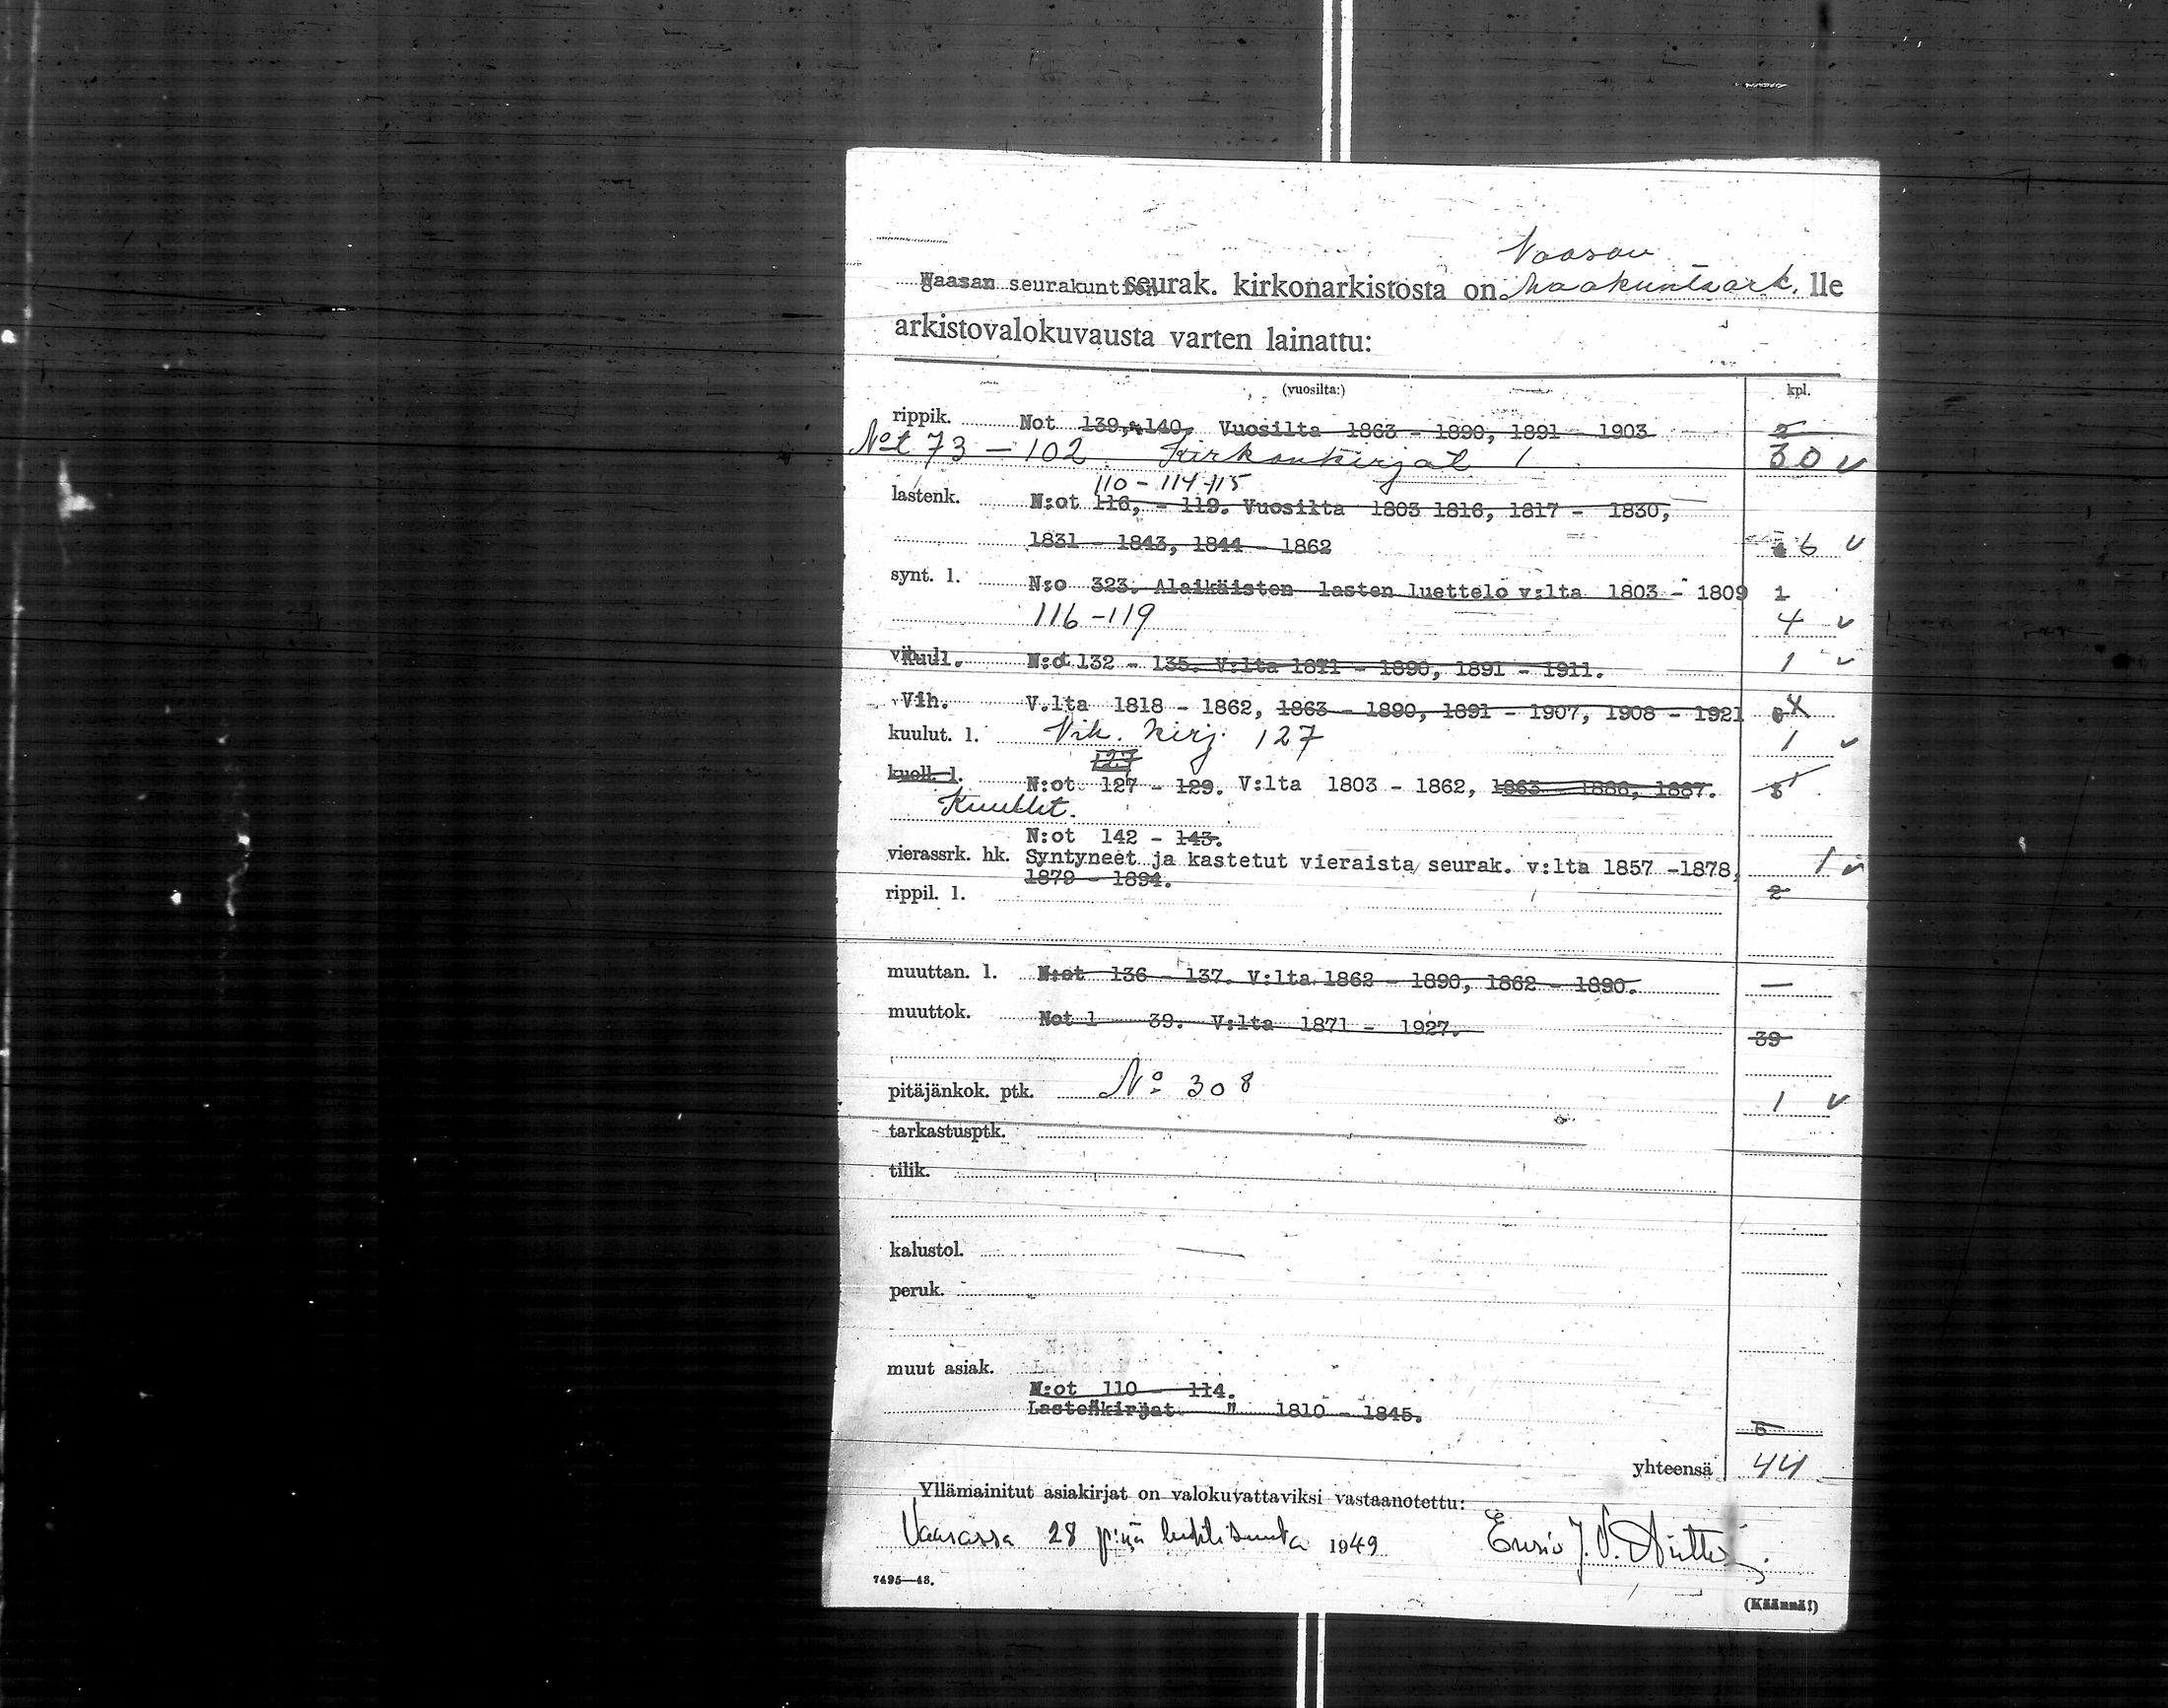 Vaasan
Waasan seurakuntien seurak. kirkonarkistosta on Maakuntaark. lle
arkistovalokuvausta varten lainattu:
(vuosilta:) kpl.
rippik. Not 139, 140, Vuosilta 1863 - 1890, 1891 - 1903 2
Not 73 - 102 Kirkonkirjat 30 v
110 - 114 115
lastenk. N:ot 116, - 119. Vuosilta 1803 1816, 1817 - 1830,
1831 - 1843, 1844 - 1862 6 v
synt. l. N:o 323. Alaikäisten lasten luettelo v:lta 1803 - 1809 1
116 - 119 4 v
Kuul. N:ot 132 - 135. V:lta 1871 - 1890, 1891 - 1911. 1 v
Vih. V.lta 1818 - 1862, 1863 - 1890, 1891 - 1907, 1908 - 1921 4
kuulut. l. Vih. kirj. 127 1 v
127
kuoll. l. N:ot 127 - 129. V:lta 1803 - 1862, 1863 - 1886, 1887.
Kuullut.
N:ot 142 - 143.
vierassrk. hk. Syntyneet ja kastetut vieraista seurak. v:lta 1857 -1878, 1 v
1879 - 1894. 2
rippil. l.
muuttan. l. N:ot 136 - 137. V:lta 1862 - 1890, 1862 - 1890. —
muuttok. Not 1 - 39. V:lta 1871 - 1927. 39
pitäjänkok. ptk. No 308 1 v
tarkastusptk.
tilik.
kalustol. —
peruk.
muut asiak.
N:ot 110 - 114.
Lastenkirjat " 1810 - 1845.
5
yhteensä 44
Yllämainitut asiakirjat on valokuvattaviksi vastaanotettu:
Vaasassa 28 p:nä huhtikuuta 1949 J. V.
7495—48.
(Käännä!)